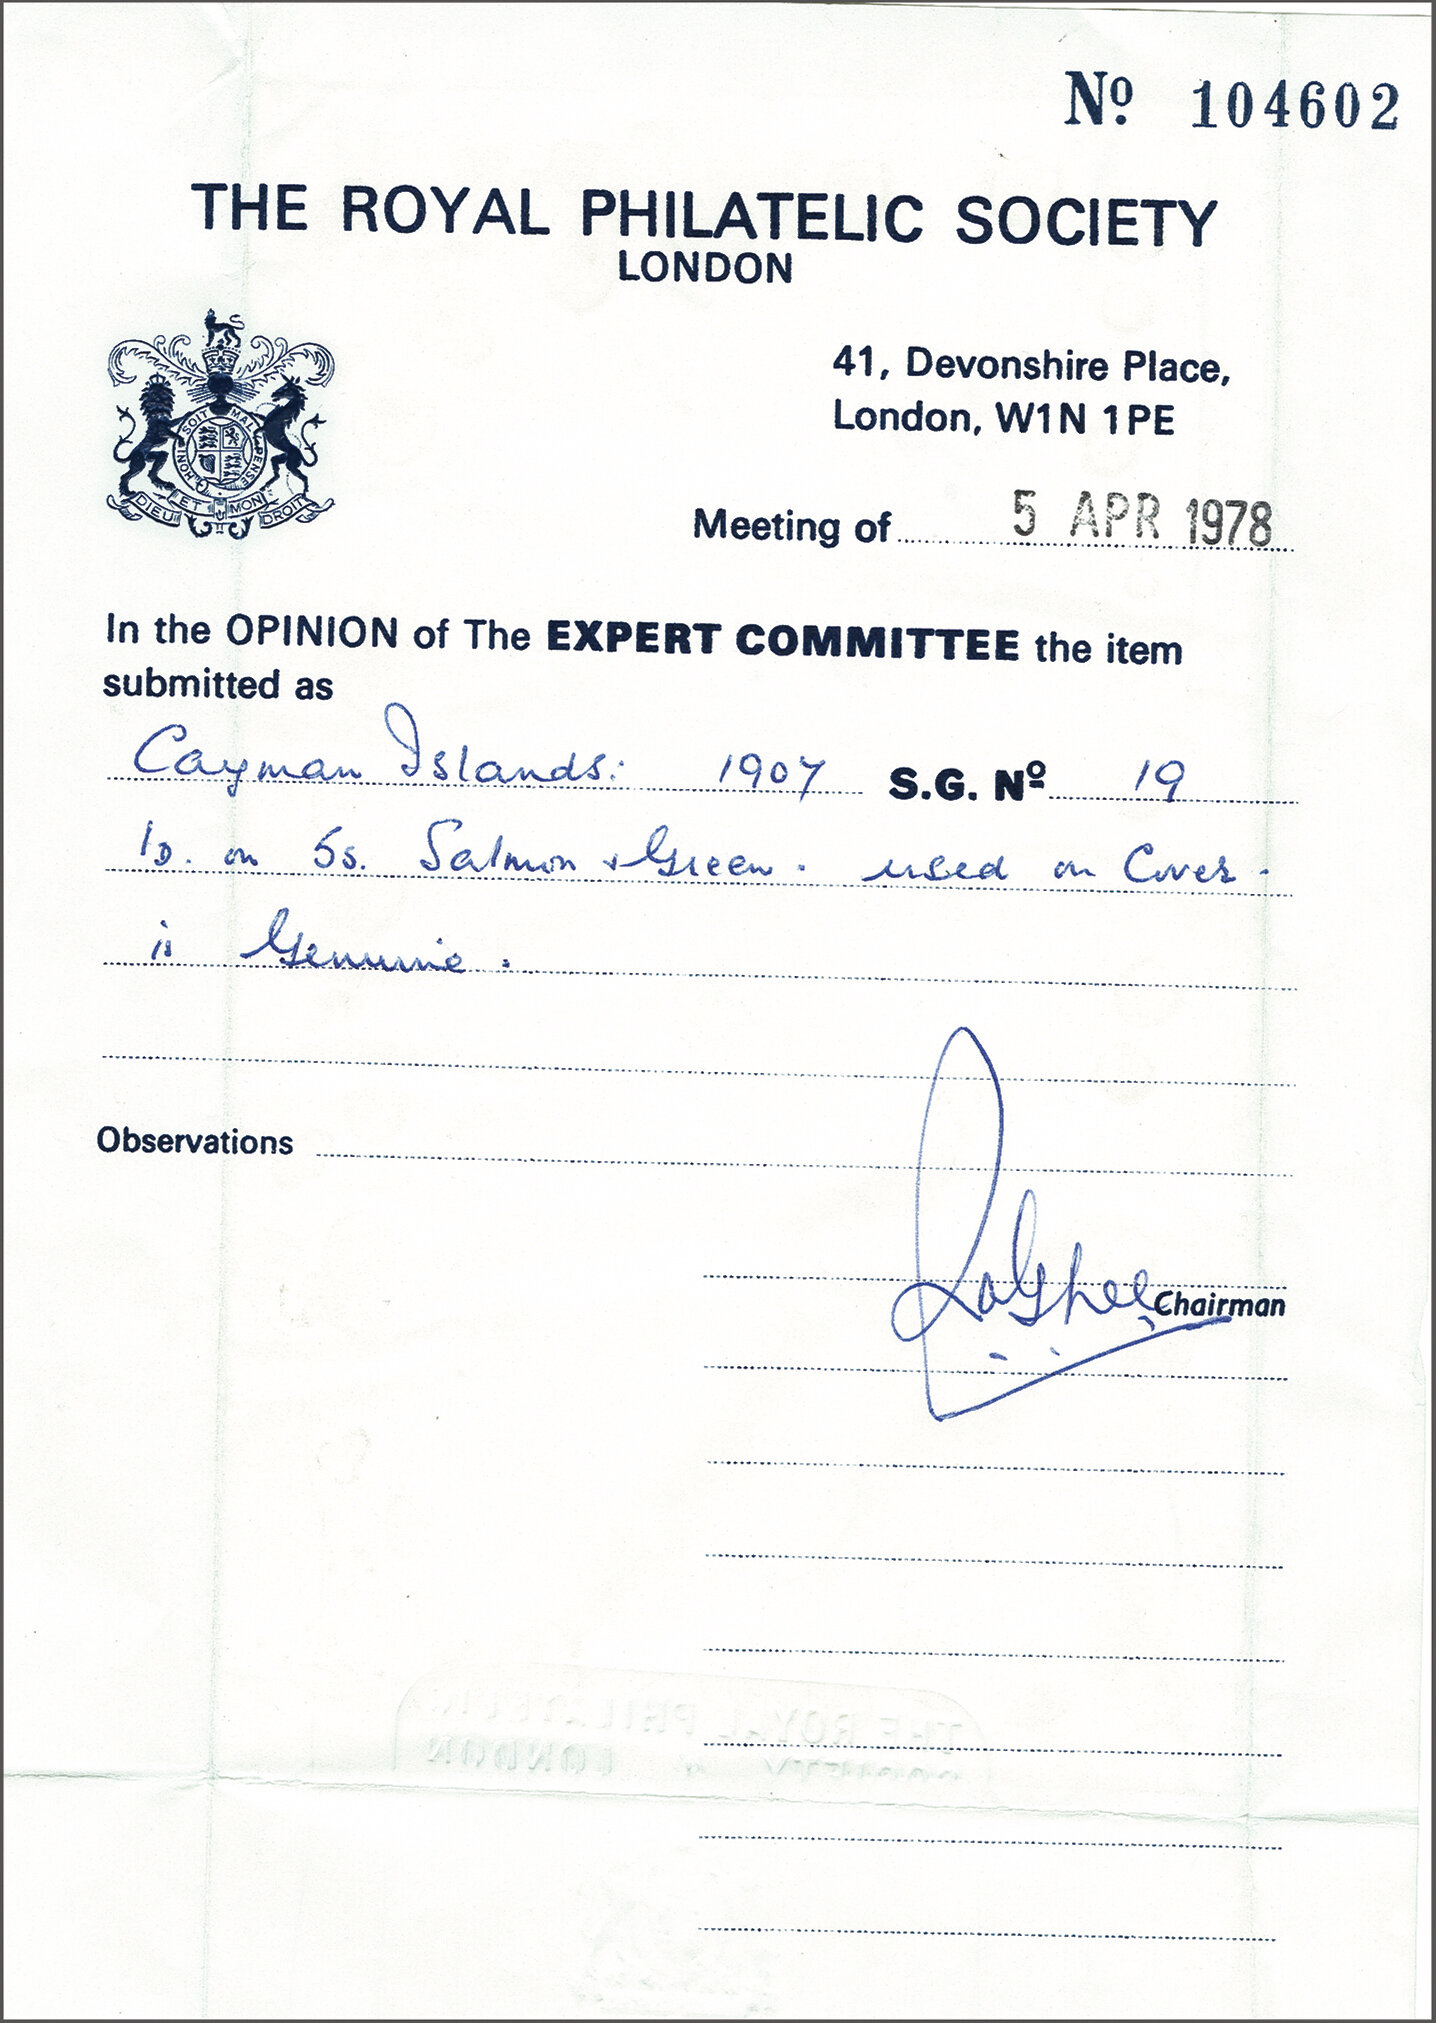 Nº 104602
THE ROYAL PHILATELIC SOCIETY
LONDON
41, Devonshire Place,
London, W1N 1PE
HONI SOIT MAL PENSE
DIEU ET MON DROIT
Meeting of 5 APR 1978
In the OPINION of The EXPERT COMMITTEE the item
submitted as
Cayman Islands: 1907 S.G. Nº 19
1D. on 5s. Salmon & Green. used on Cover.
is Genuine.
Observations
Chairman
THE ROYAL PHILATELIC
SOCIETY LONDON